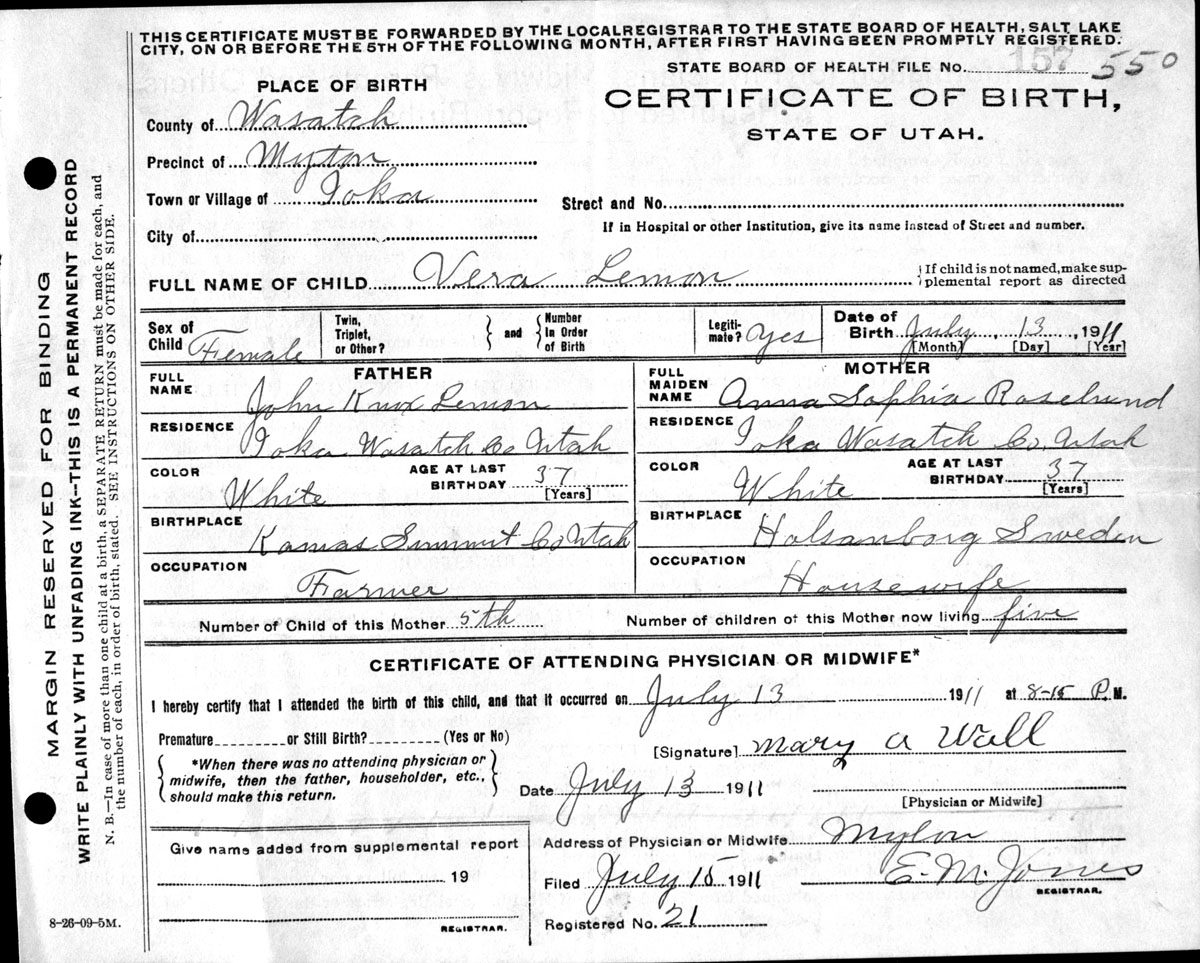 THIS CERTIFICATE MUST BE FORWARDED BY THE LOCAL REGISTRAR TO THE STATE BOARD OF HEALTH, SALT LAKE
CITY, ON OR BEFORE THE 5TH OF THE FOLLOWING MONTH, AFTER FIRST HAVING BEEN PROMPTLY REGISTERED.
STATE BOARD OF HEALTH FILE No. 157 550
PLACE OF BIRTH
CERTIFICATE OF BIRTH,
STATE OF UTAH.
County of Wasatch
Precinct of Myton
Town or Village of Ioka
Street and No.
City of
If in Hospital or other Institution, give its name instead of Street and number.
FULL NAME OF CHILD Vera Lemon
If child is not named, make sup-
plemental report as directed
Sex of Child Female
Twin, Triplet, or Other?
and
Number In Order of Birth
Legiti-mate? Yes
Date of Birth July 13, 1911
[Month] [Day] [Year]
FATHER
FULL NAME John Knox Lemon
RESIDENCE Ioka Wasatch Co Utah
COLOR White
AGE AT LAST BIRTHDAY 37
[Years]
BIRTHPLACE Kamas Summit Co Utah
OCCUPATION Farmer
MOTHER
FULL MAIDEN NAME Anna Sophia Roselund
RESIDENCE Ioka Wasatch Co, Utah
COLOR White
AGE AT LAST BIRTHDAY 37
[Years]
BIRTHPLACE Halsanborg Sweden
OCCUPATION Housewife
Number of Child of this Mother 5th
Number of children of this Mother now living five
CERTIFICATE OF ATTENDING PHYSICIAN OR MIDWIFE*
I hereby certify that I attended the birth of this child, and that it occurred on July 13 1911 at 8-15 P.M.
Premature or Still Birth? (Yes or No)
[Signature] Mary A Wall
*When there was no attending physician or
midwife, then the father, householder, etc.,
should make this return.
Date July 13 1911
[Physician or Midwife]
Give name added from supplemental report
19
REGISTRAR.
Address of Physician or Midwife Myton
Filed July 15 1911 E. M. Jones
REGISTRAR.
Registered No. 21
8-26-09-5M.
MARGIN RESERVED FOR BINDING
WRITE PLAINLY WITH UNFADING INK--THIS IS A PERMANENT RECORD
N. B.—In case of more than one child at a birth, a SEPARATE RETURN must be made for each, and
the number of each, in order of birth, stated. SEE INSTRUCTIONS ON OTHER SIDE.